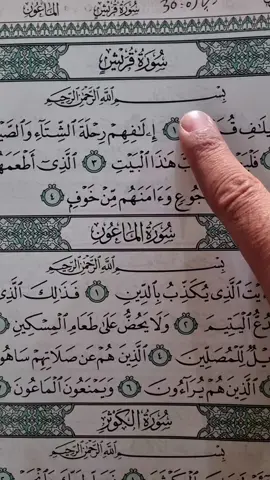 الماعون قريش
سُورَةُ قُرَيْشٍ
بِسْمِ اللَّهِ الرَّحْمَٰنِ الرَّحِيمِ
١ إِۦلَٰفِهِمْ رِحْلَةَ ٱلشِّتَآءِ وَٱلصَّ
هَٰذَا ٱلْبَيْتِ ٣ ٱلَّذِىٓ أَطْعَمَهُ
جُوعٍ وَءَامَنَهُم مِّنْ خَوْفٍ ٤
سُورَةُ المَاعُونِ
بِسْمِ اللَّهِ الرَّحْمَٰنِ الرَّحِيمِ
يْتَ ٱلَّذِى يُكَذِّبُ بِٱلدِّينِ ١ فَذَٰلِكَ ٱلَّذِى
عُّ ٱلْيَتِيمَ ٢ وَلَا يَحُضُّ عَلَىٰ طَعَامِ ٱلْمِسْكِينِ
يْلٌ لِّلْمُصَلِّينَ ٤ ٱلَّذِينَ هُمْ عَن صَلَاتِهِمْ سَاهُو
ٱلَّذِينَ هُمْ يُرَآءُونَ ٦ وَيَمْنَعُونَ ٱلْمَاعُونَ
سُورَةُ الكَوْثَرِ
بِسْمِ اللَّهِ الرَّحْمَٰنِ الرَّحِيمِ